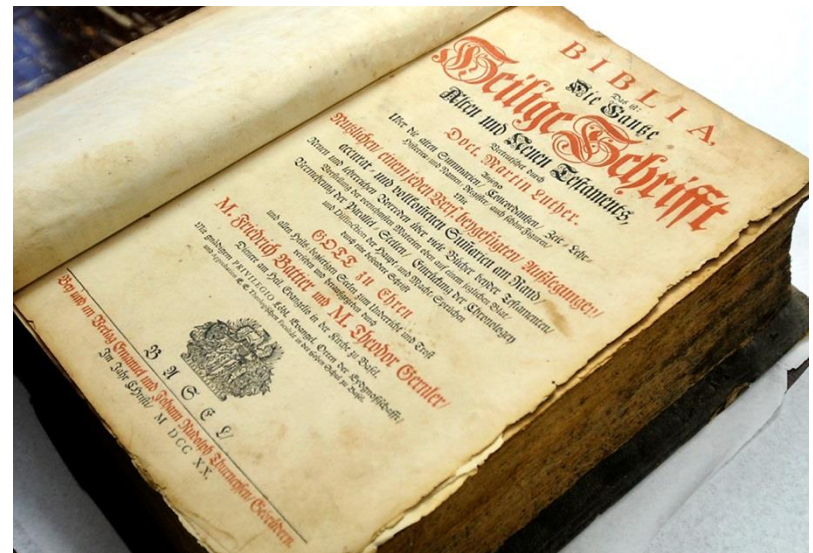 BIBLIA,
Das ist:
Die Gantze
Heilige Schrifft
Alten und Neuen Testaments,
Verteutschet durch
Doct. Martin Luther.
Anjetzo Mit
Uber die alten Summarien/ Concordantzen/ Zeit-Lehr-
Historien und Namen-Register auch schöne Figuren/
Nutzlichen/ einem jeden Vers beygefügten/ Außlegungen/
accurat- und vollkommenen Sumarien am Rand/
Neuen und lehrreichen Vorreden über viele Bücher beyder Testamenten/
Vorstellung der vornehmsten Materien oben auf einem jeglichen Blat/
Vermehrung der Parallel-Stellen/ Einrichtung der Chronologey
und Distinction der Haupt- und Macht-Sprüchen
durch eine besondere Schrifft
GOTT zu Ehren
und allen Heyls-begierigen Seelen zum Unterricht und Trost
versehen und herausgegeben durch
M. Friedrich Battier und M. Theodor Gernler/
Dienere am Heil. Evangelio in der Kirche zu Basel.
Mit gnädigem PRIVILEGIO Löbl. Evangel. Orten der Eydgnoßschafft/
und Approbation E. E. Theologischen Facultät in der hohen Schul zu Basel.
BASEL/
Bey und in Verlag Emanuel und Johann Rudolph Thurneysen/ Gebrüdern.
Im Jahr Christi/ M DCC XX.